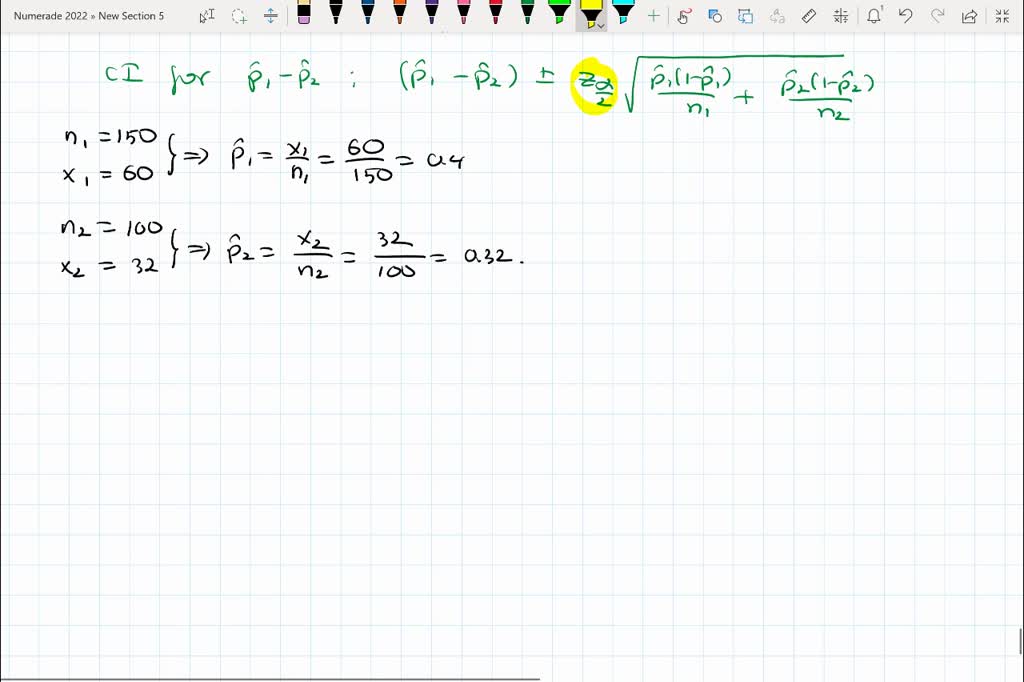 Numerade 2022 » New Section 5
CI for p̂₁ - p̂₂ ; (p̂₁ - p̂₂) ± z_α/2 √( p̂₁(1-p̂₁)/n₁ + p̂₂(1-p̂₂)/n₂ )
n₁ = 150
x₁ = 60 } ⇒ p̂₁ = x₁/n₁ = 60/150 = 0.4
n₂ = 100
x₂ = 32 } ⇒ p̂₂ = x₂/n₂ = 32/100 = 0.32.